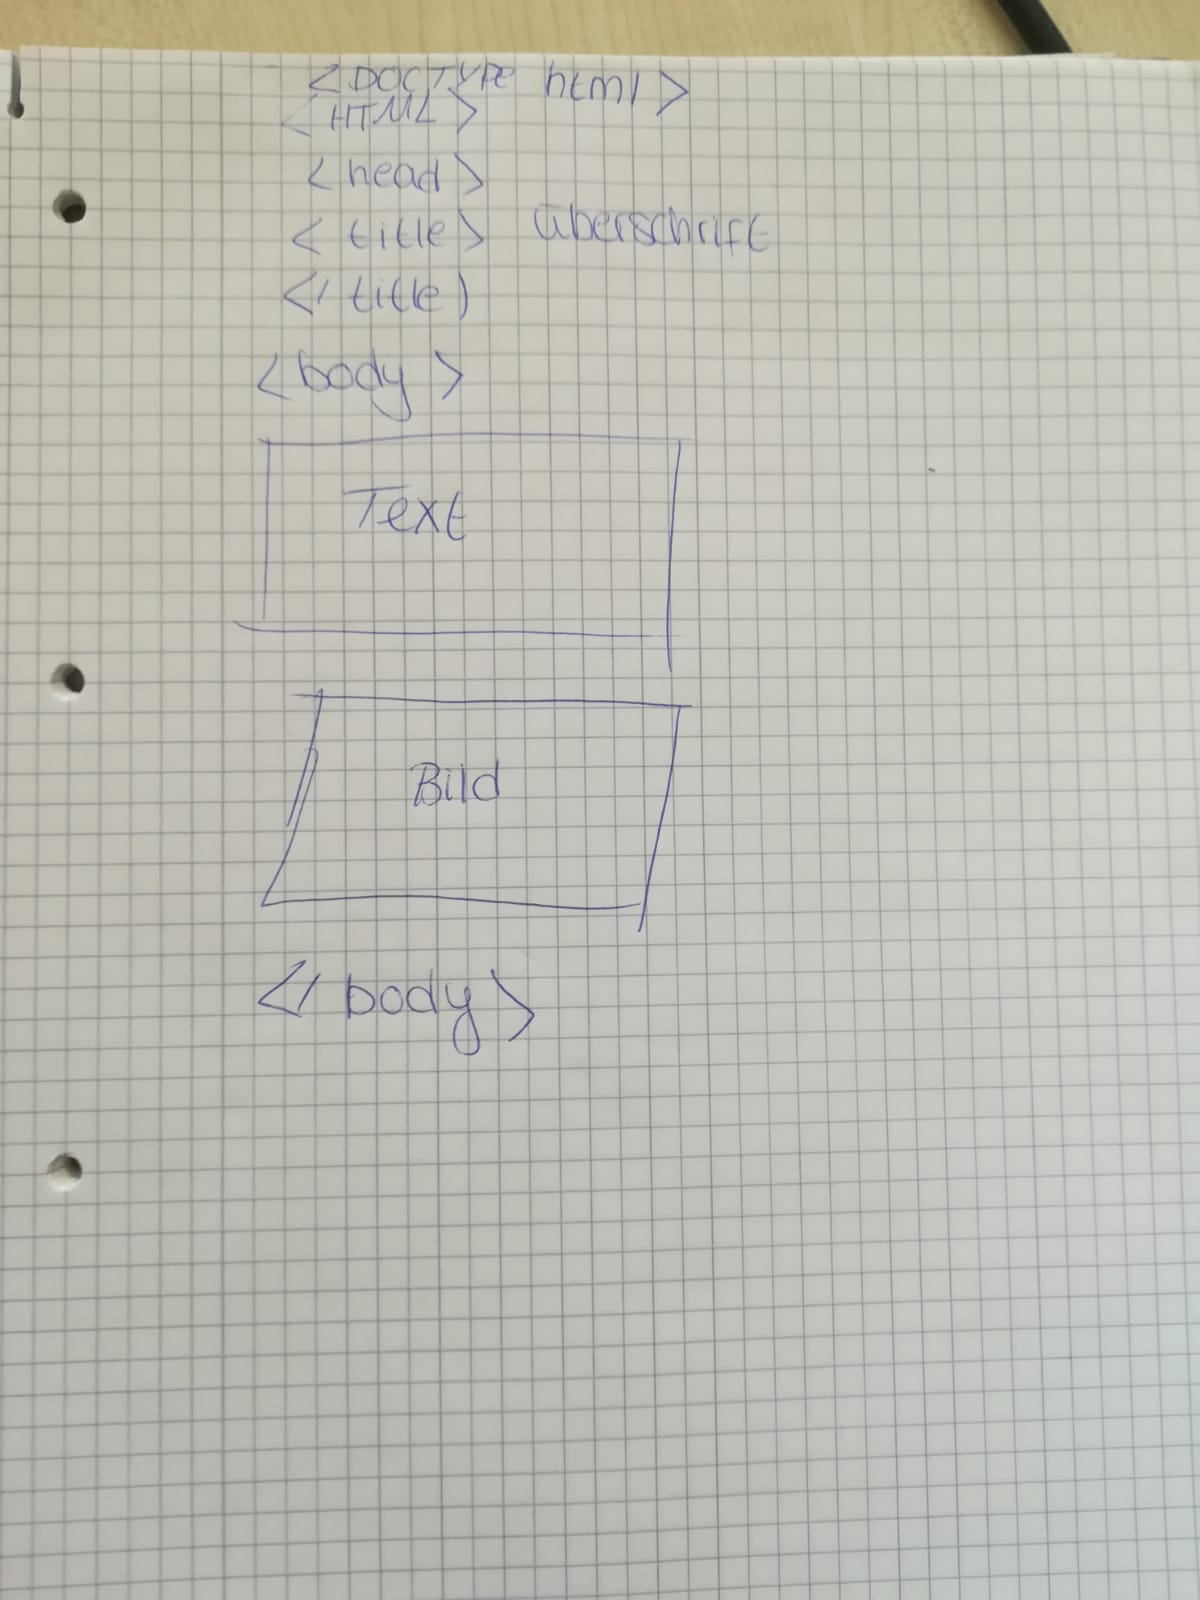 <DOCTYPE html>
<HTML>
<head>
<title> überschrift
</title)
<body>
Text
Bild
</body>